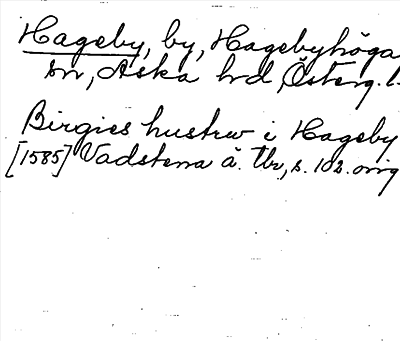 Hageby, by, Hagebyhöga
sn, Aska hrd, Österg. l.
Birgies hustrw i Hageby
[1585] Vadstena ä. tb, s. 102. orig